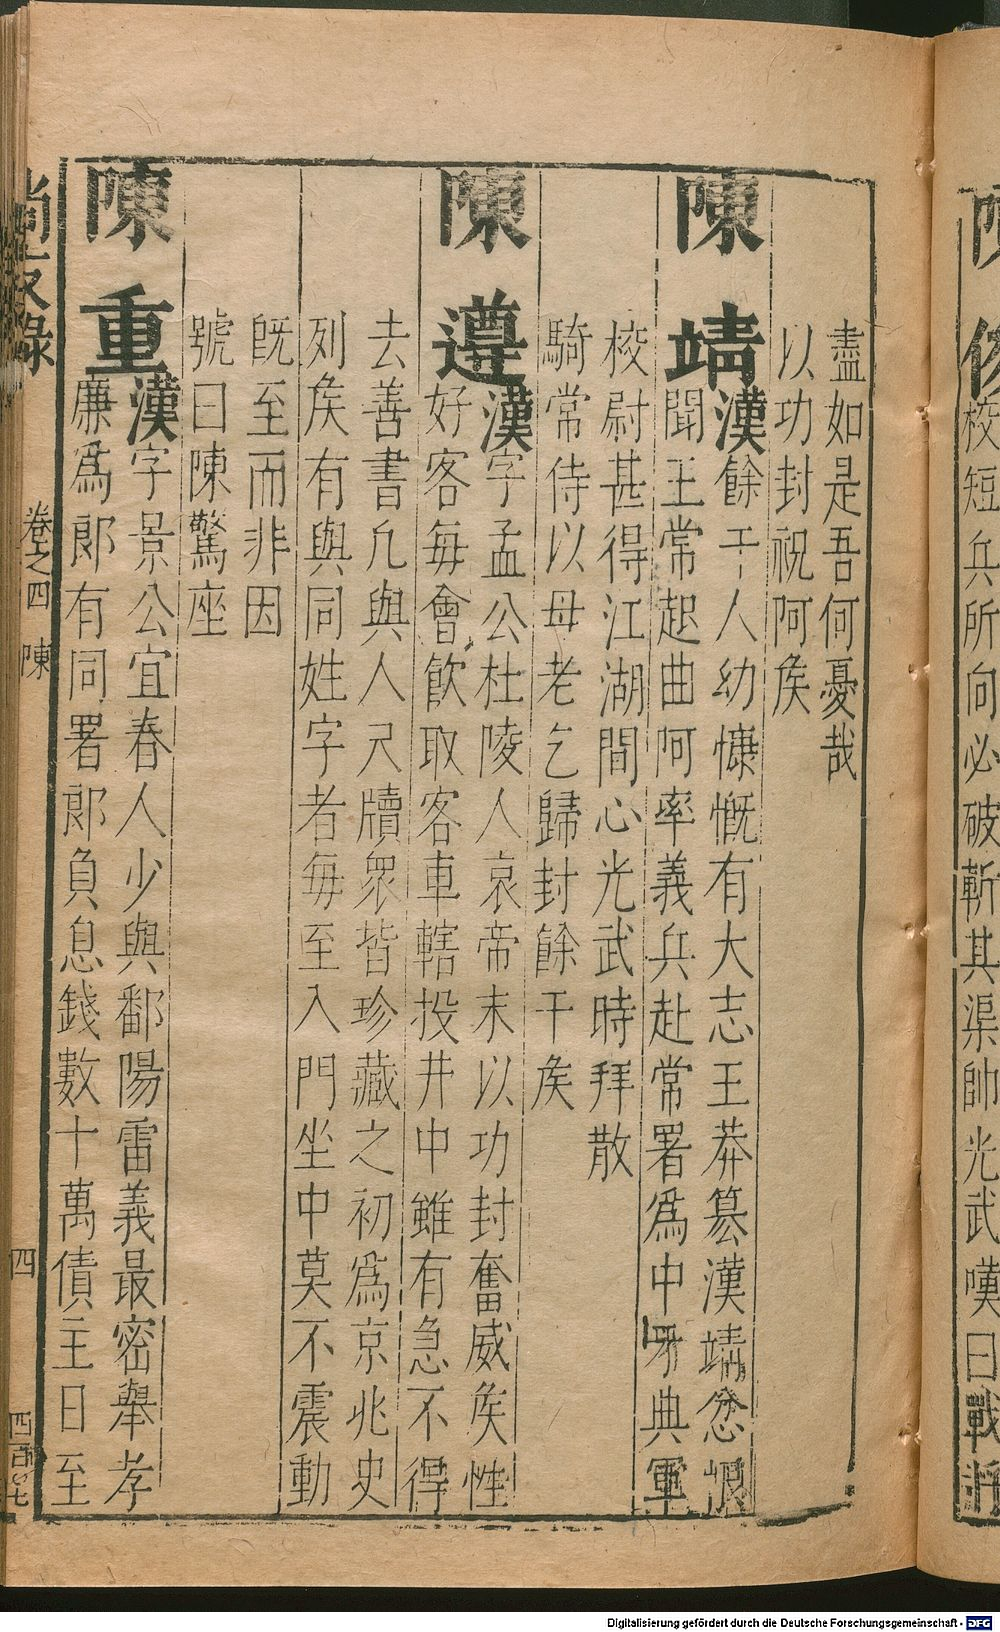 校短兵所向必破斬其渠帥光武嘆曰戰將
盡如是吾何憂哉
以功封祝阿矦
陳靖
漢餘干人幼慷慨有大志王莽篡漢靖忿恨
聞王常起曲阿率義兵赴常署為中牙典軍
校尉甚得江湖間心光武時拜散
騎常侍以母老乞歸封餘干矦
陳遵
漢字孟公杜陵人哀帝末以功封奮威矦性
好客每會飲取客車轄投井中雖有急不得
去善書凡與人尺牘衆皆珍藏之初為京兆史
列矦有與同姓字者每至入門坐中莫不震動
旣至而非因
號曰陳驚座
陳重
漢字景公宜春人少與鄱陽雷義最密舉孝
廉為郎有同署郎負息錢數十萬債主日至
尚友錄 卷之四 陳 四
Digitalisierung gefördert durch die Deutsche Forschungsgemeinschaft - DFG